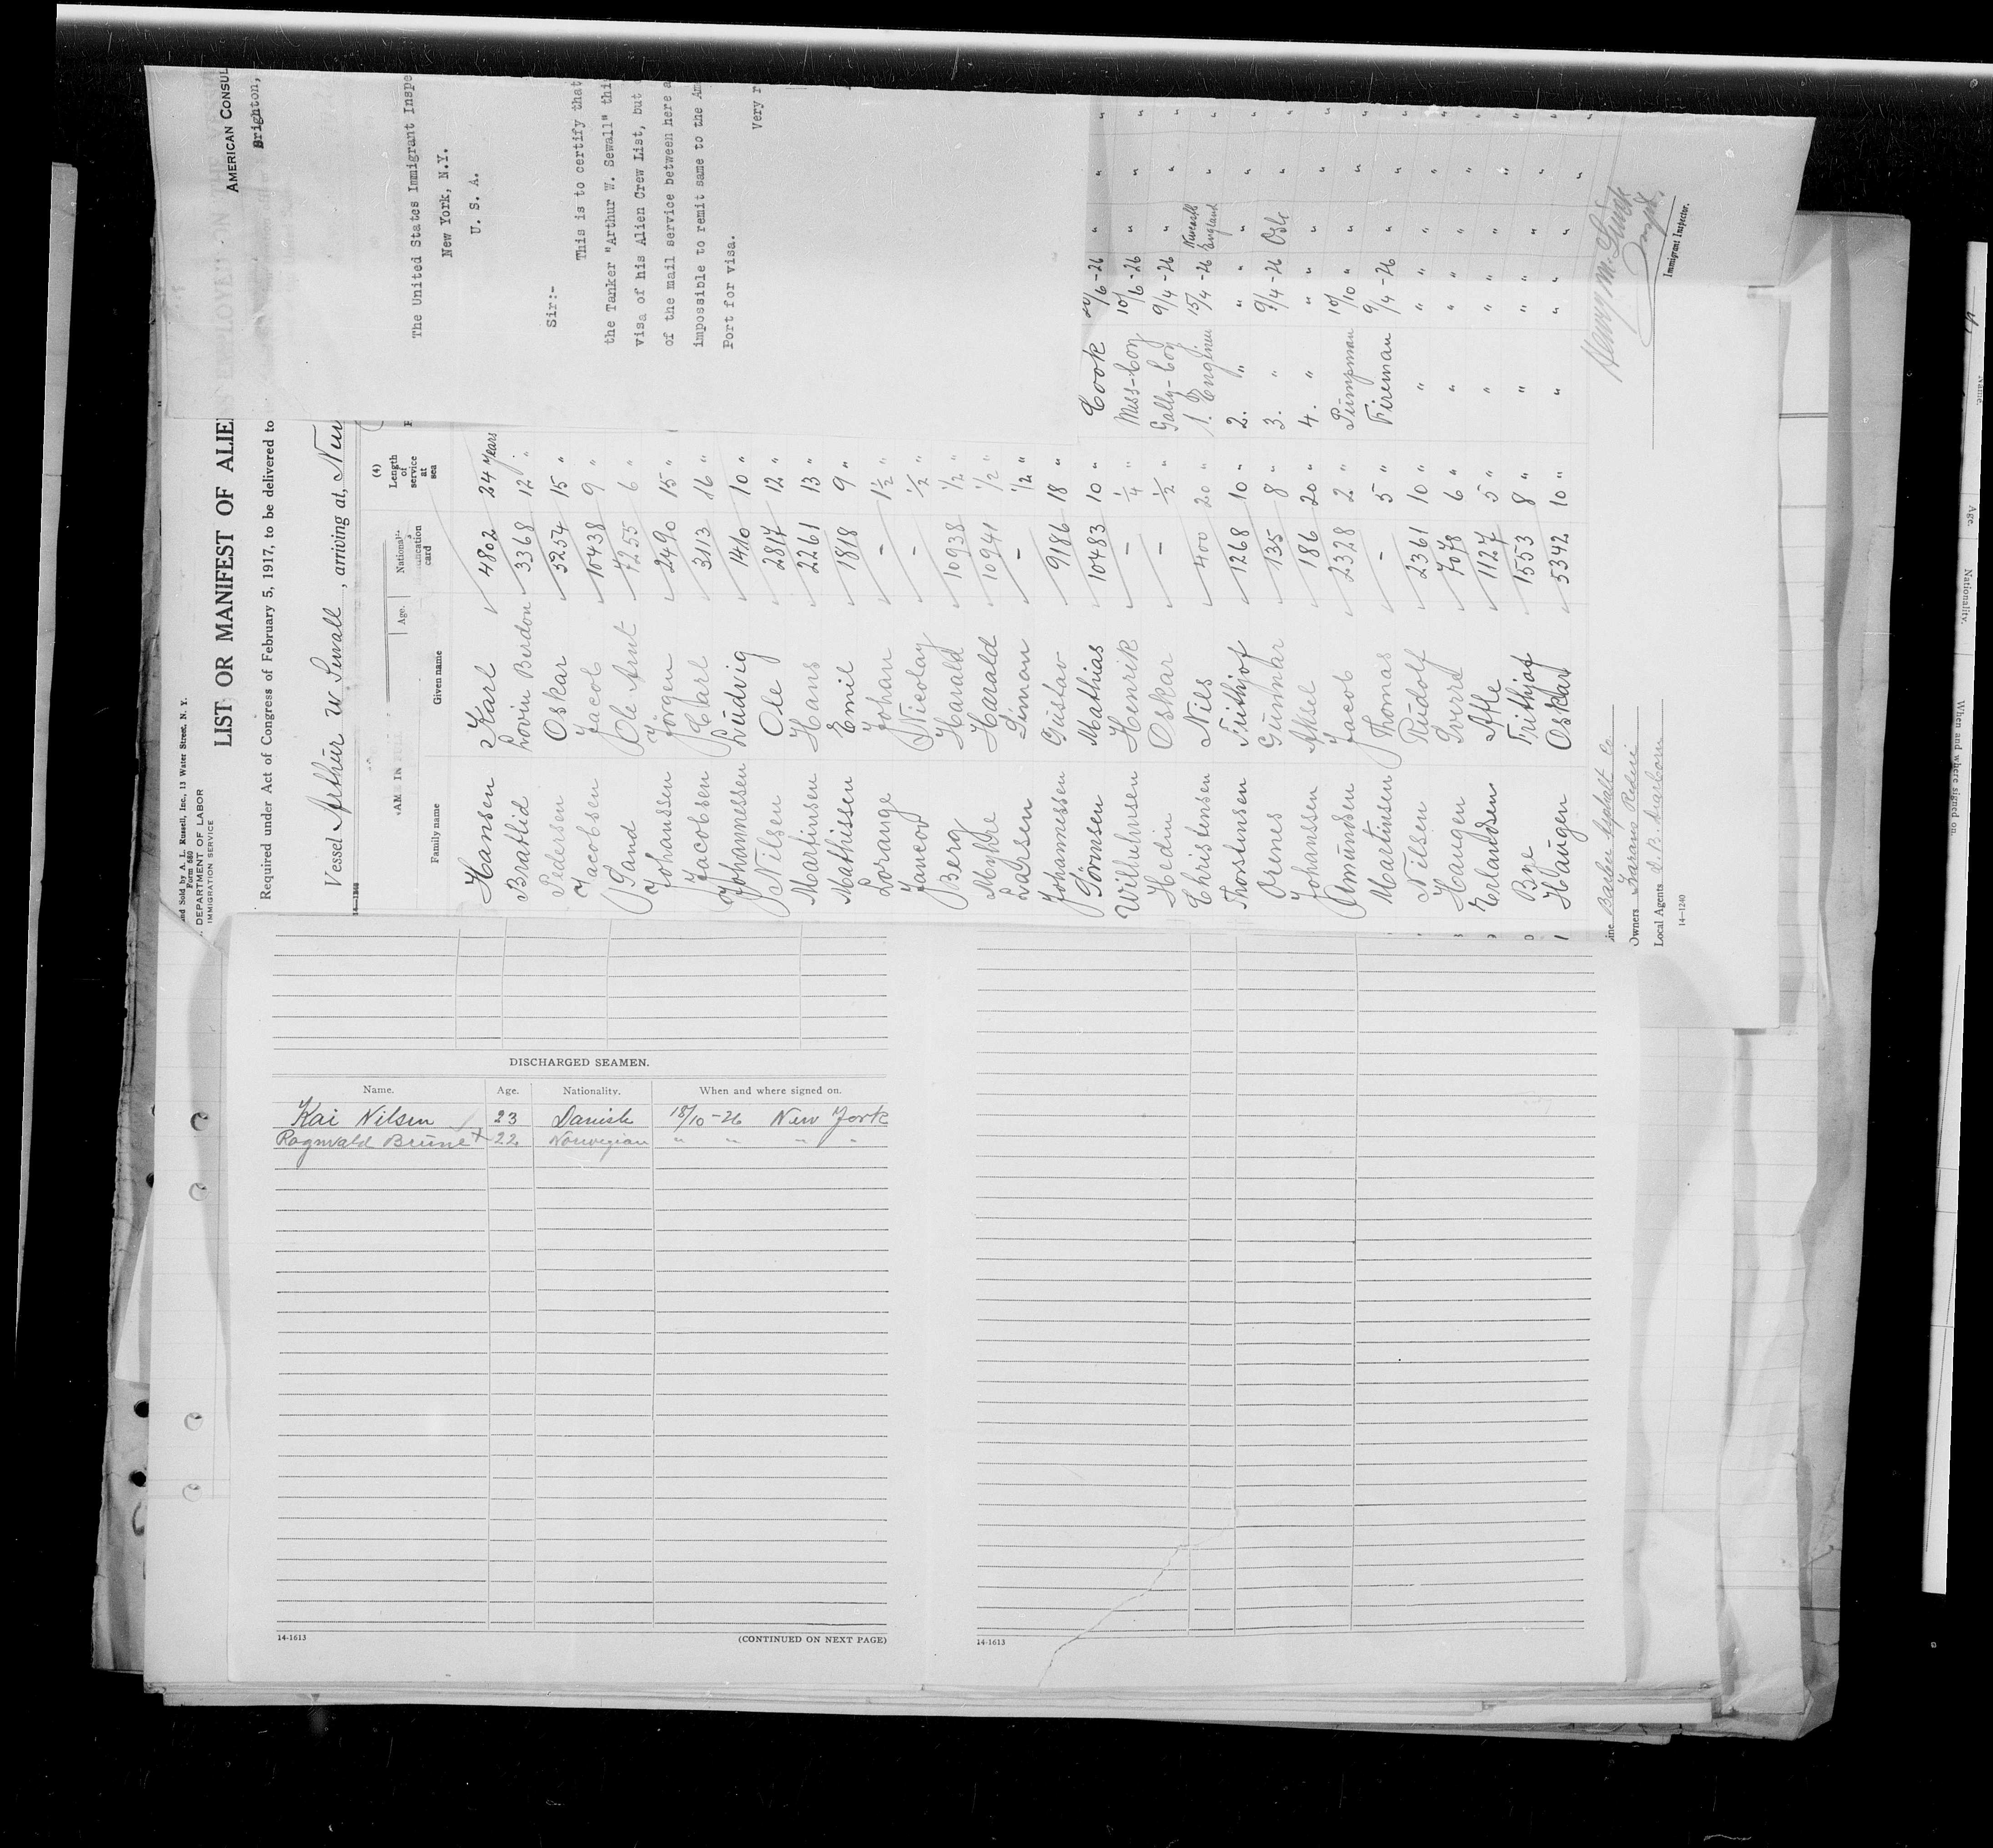 AMERICAN CONSUL
Brighton,
The United States Immigrant Inspe
New York, N.Y.
U. S. A.
Sir:-
This is to certify that
the Tanker "Arthur W. Sewall" thi
visa of his Alien Crew List, but
of the mail service between here a
impossible to remit same to the Am
Port for visa.
Very r
nd Sold by A. L. Russell, Inc., 13 Water Street, N. Y.
Form 680
. DEPARTMENT OF LABOR
IMMIGRATION SERVICE
LIST OR MANIFEST OF ALIE
Required under Act of Congress of February 5, 1917, to be delivered to
Vessel Arthur W Sewall , arriving at, New
14—1240
NAME IN FULL Age. National (4) Length of service at sea
Family name Given name
Hansen Karl 4802 24 years
Bratlid Lovin Berdon 3368 12 "
Pedersen Oskar 5254 15 "
Jacobsen Jacob 10438 9 "
Sand Ole Arnt 7255 6 "
Johanssen Jörgen 2490 15 "
Jacobsen Karl 3113 16 "
Johannessen Ludvig 1410 10 "
Nilsen Ole 2817 12 "
Martinsen Hans 2261 13 "
Mathissen Emil 1818 9 "
Lorange Johan - 1½ "
Nicolay - ½ "
Berg Harald 10938 ½ "
Myhre Harald 10941 ½ "
Larsen Simon - ½ "
Johannessen Gustav 9186 18 "
Tönnsen Mathias 10483 10 " Cook 10/6-26 " " "
Wilhelmsen Henrik - ¼ " Mess-boy 10/6-26 " " "
Hedin Oskar - ½ " Gally-boy 9/4-26 " " "
Christensen Nils 400 20 " 1. Engineer 15/4-26 Newcastle England " "
Thorstensen Frithjof 1268 10 " 2. " " " " "
Orenes Gunnar 135 8 " 3. " 9/4-26 Oslo " "
Johanssen Aksel 186 20 " 4. " " " " "
Amundsen Jacob 2328 2 " Pumpman 10/10 " " " "
Martinsen Thomas - 5 " Fireman 9/4-26 " " "
Nilsen Rudolf 2361 10 " " " " " "
Haugen Sverre 7078 6 " " " " " "
Erlandsen Atle 1127 5 " " " " " "
Bye Frithjof 1553 8 " " " " " "
Haugen Oskar 5342 10 " " " " " "
Henry M.
Immigrant Inspector.
ine
Owners
Local Agents
14—1240
DISCHARGED SEAMEN.
Name. Age. Nationality. When and where signed on.
Kai Nilsen 23 Danish 18/10-26 New York
Ragnvald Brune + 22 Norwegian " " " "
14-1613
(CONTINUED ON NEXT PAGE)
14-1613
Name. Age. Nationality. When and where signed on.